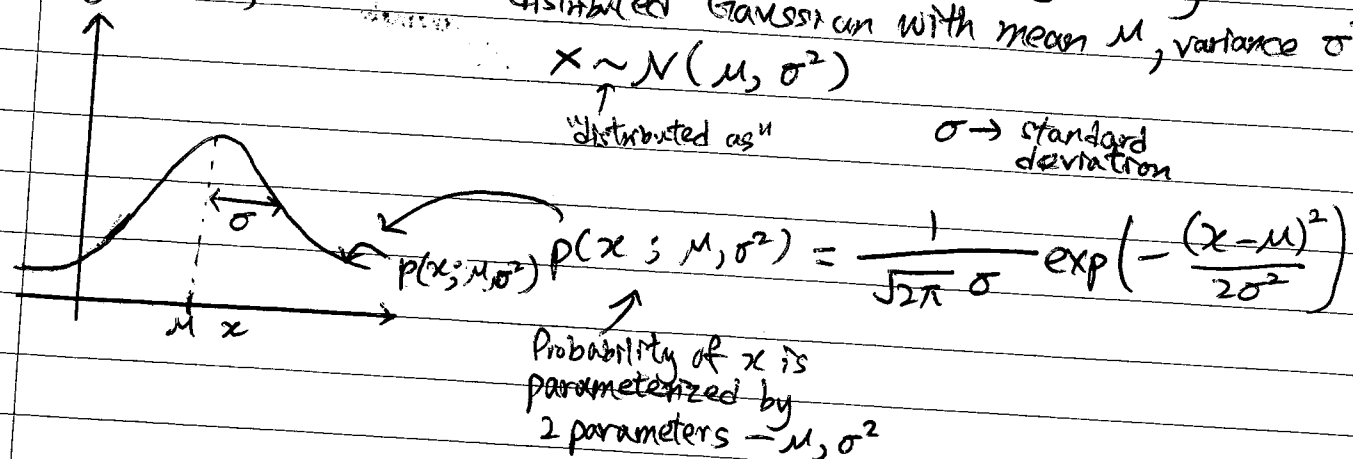 distributed Gaussian with mean μ, variance σ
x ~ N(μ, σ²)
"distributed as"
σ → standard
deviation
σ
p(x; μ, σ²)
p(x ; μ, σ²) = 1 / √2π σ exp(-(x-μ)² / 2σ²)
μ x
Probability of x is
parameterized by
2 parameters - μ, σ²